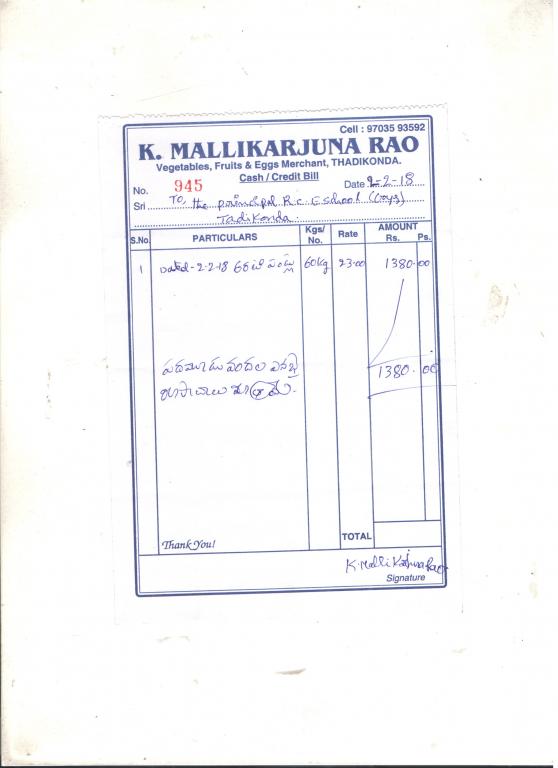 Cell : 97035 93592
K. MALLIKARJUNA RAO
Vegetables, Fruits & Eggs Merchant, THADIKONDA.
Cash / Credit Bill
No. 945 Date 2-2-18
Sri To, the principal R.C. E School (Boys)
Tadikonda.
S.No. PARTICULARS Kgs/No. Rate AMOUNT Rs. Ps.
1 Dated-2-2-18 అరటి పండ్లు 60kg 23.00 1380.00
పదమూడు వందల ఎనభై 1380.00
రూపాయలు మాత్రమే.
Thank You! TOTAL
K. Mallikarjuna Rao
Signature